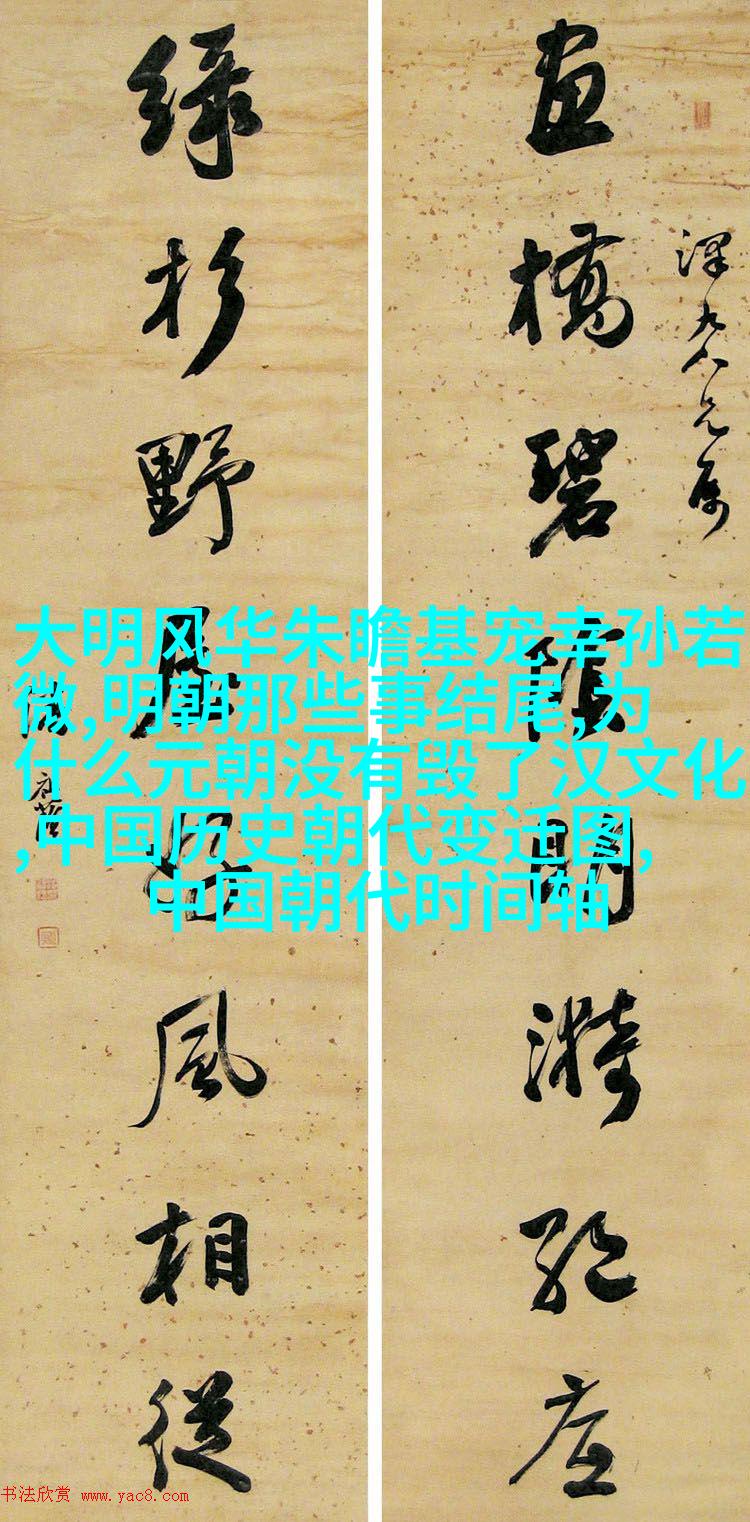 畫橋碧陰明漪絕底
綠杉野屋好風相從
大明风华朱瞻基宠幸孙若
微,明朝那些事结尾,为
什么元朝没有毁了汉文化
,中国历史朝代变迁图,
中国朝代时间轴
书法欣赏 www.yac8.com